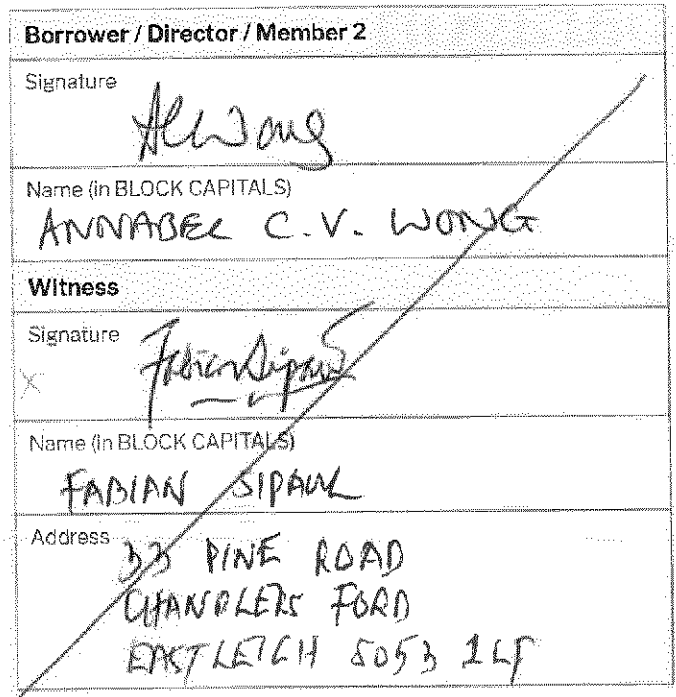 Borrower / Director / Member 2
Signature
ACWong
Name (in BLOCK CAPITALS)
ANNABEL C.V. WONG
Witness
Signature
Fabian Sipaul
X
Name (in BLOCK CAPITALS)
FABIAN SIPAUL
Address
33 PINE ROAD
CHANDLERS FORD
EASTLEIGH SO53 1LF